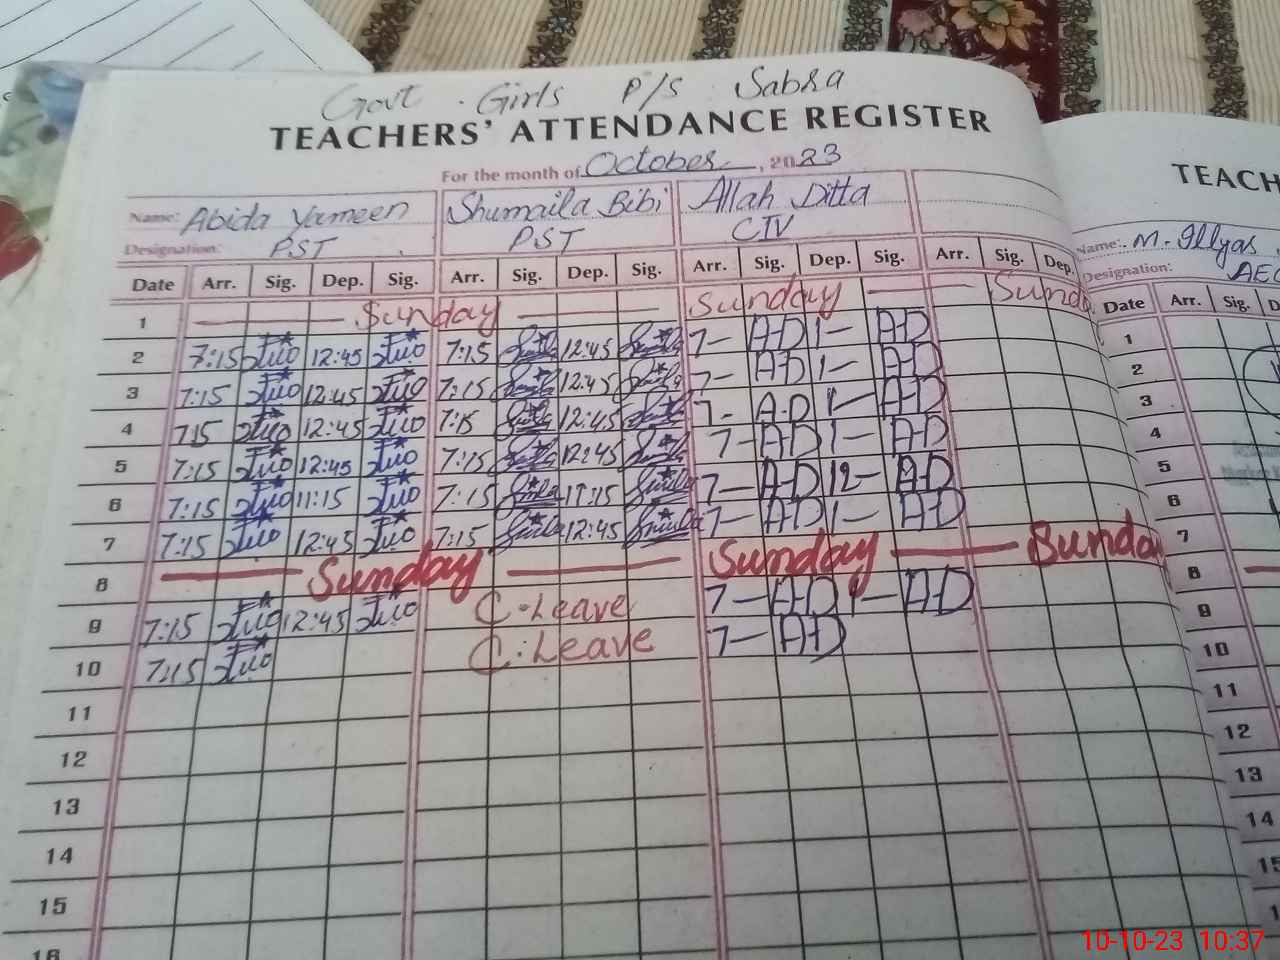 Govt. Girls P/S Sabra
TEACHERS' ATTENDANCE REGISTER
For the month of October, 2023
Name: Abida Yameen Shumaila Bibi Allah Ditta
Designation: PST PST CIV
Date Arr. Sig. Dep. Sig. Arr. Sig. Dep. Sig. Arr. Sig. Dep. Sig. Arr. Sig. Dep.
1 Sunday Sunday Sund
2 7:15 12:45 7:15 12:45 7- A-D 1- A-D
3 7:15 12:45 7:15 12:45 7- A-D 1- A-D
4 7:15 12:45 7:15 12:45 7- A-D 1- A-D
5 7:15 12:45 7:15 12:45 7- A-D 1- A-D
6 7:15 11:15 7:15 11:15 7- A-D 12- A-D
7 7:15 12:45 7:15 12:45 7- A-D 1- A-D
8 Sunday Sunday Sunda
9 7:15 12:45 C-Leave 7- A-D 1- A-D
10 7:15 C:Leave 7- A-D
11
12
13
14
15
16
TEACH
Name: M. Illyas
Designation: AEO
Date Arr. Sig. D
1
2
3
4
5
6
7
8
9
10
11
12
13
14
15
10-10-23 10:37